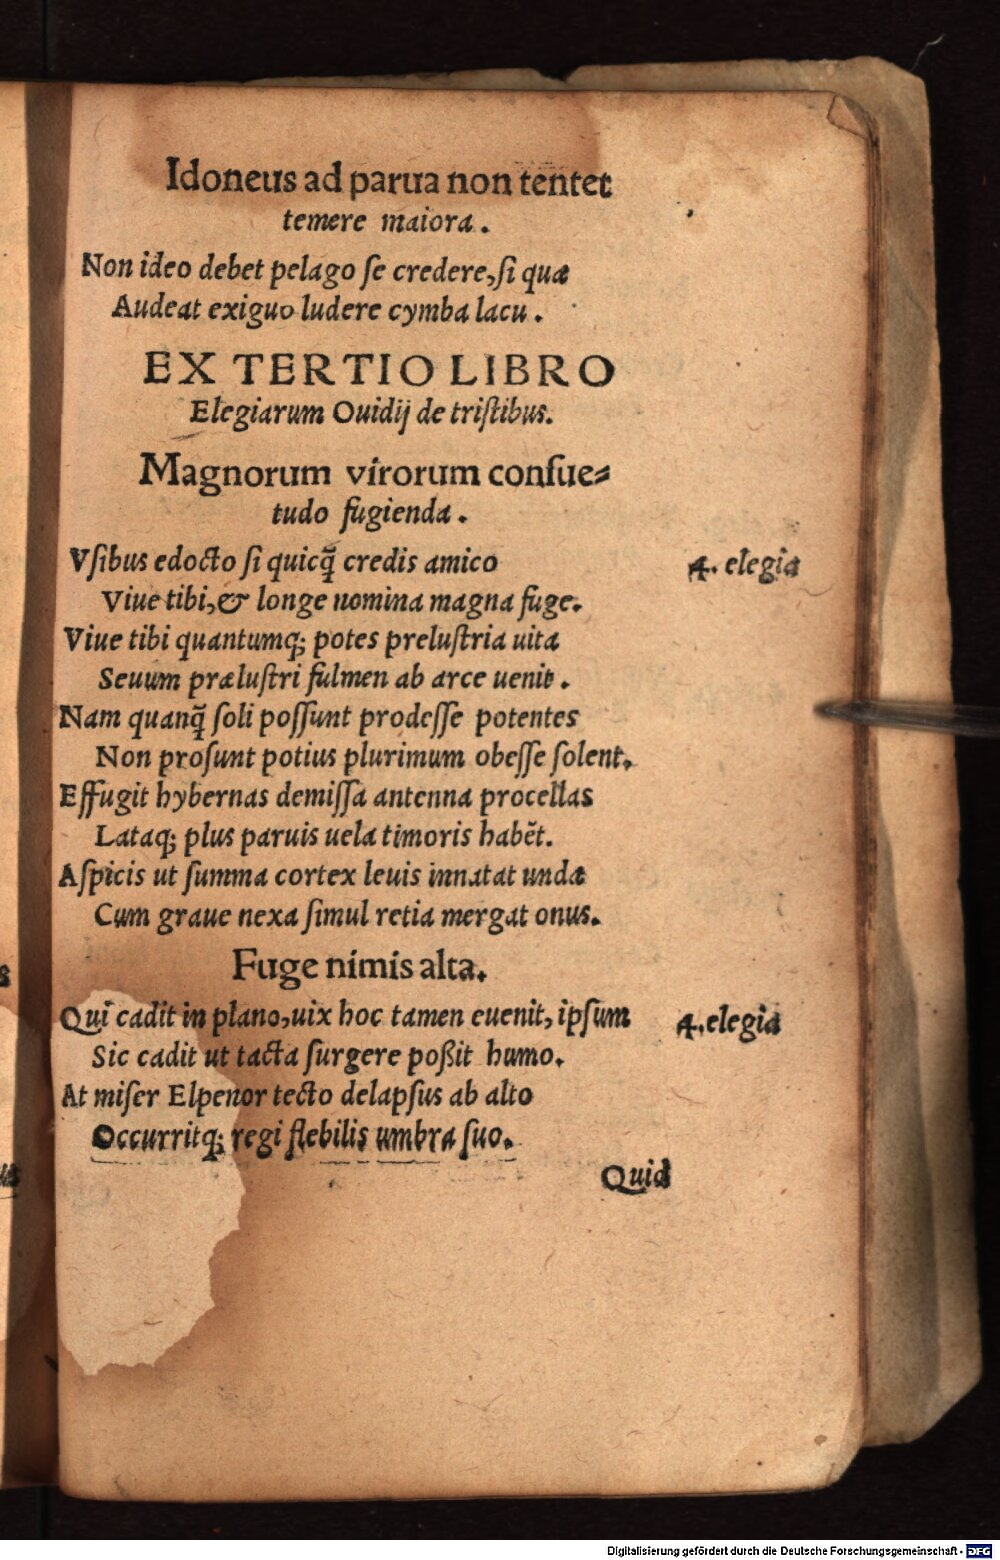 Idoneus ad parua non tentet
temere maiora.
Non ideo debet pelago ſe credere, ſi qua
Audeat exiguo ludere cymba lacu.
EX TERTIO LIBRO
Elegiarum Ouidij de triſtibus.
Magnorum virorum conſue⸗
tudo fugienda.
Vſibus edocto ſi quicq̃ credis amico
4. elegia
Viue tibi, & longe nomina magna fuge.
Viue tibi quantumq; potes preluſtria uita
Seuum præluſtri fulmen ab arce uenit.
Nam quanq̃ ſoli poſſunt prodeſſe potentes
Non proſunt potius plurimum obeſſe ſolent.
Effugit hybernas demiſſa antenna procellas
Lataq; plus paruis uela timoris habẽt.
Aſpicis ut ſumma cortex leuis innatat unda
Cum graue nexa ſimul retia mergat onus.
Fuge nimis alta.
Qui cadit in plano, uix hoc tamen euenit, ipſum
4. elegia
Sic cadit ut tacta ſurgere poßit humo.
At miſer Elpenor tecto delapſus ab alto
Occurritq; regi flebilis umbra ſuo.
Quid
s
Digitalisierung gefördert durch die Deutsche Forschungsgemeinschaft - DFG